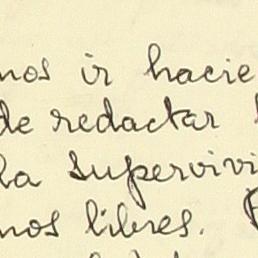 nos ir hacie
de redactar
la supervivi
nos libres.